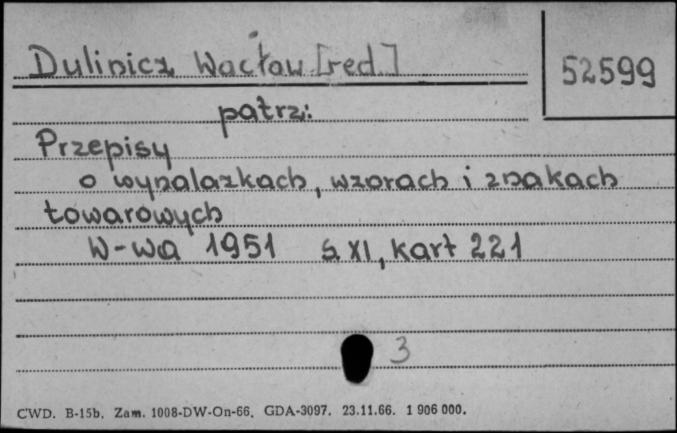 Dulinicz Wacław [red.]
52599
patrz:
Przepisy
o wynalazkach, wzorach i znakach
towarowych
W-wa 1951 s. XI, kart 221
3
CWD. B-15b. Zam. 1008-DW-On-66. GDA-3097. 23.11.66. 1 906 000.